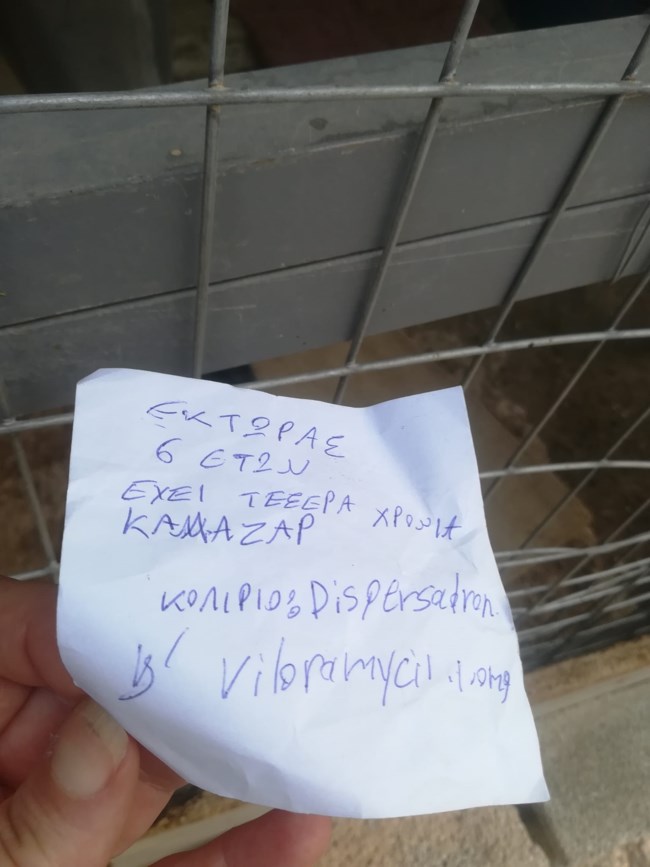 ΕΚΤΩΡΑΣ
6 ΕΤΩΝ
ΕΧΕΙ ΤΕΣΣΕΡΑ ΧΡΟΝΙΑ
ΚΑΛΑΖΑΡ
ΚΟΛΙΡΙΟ: Dispersadron.
Β' Vibramycil